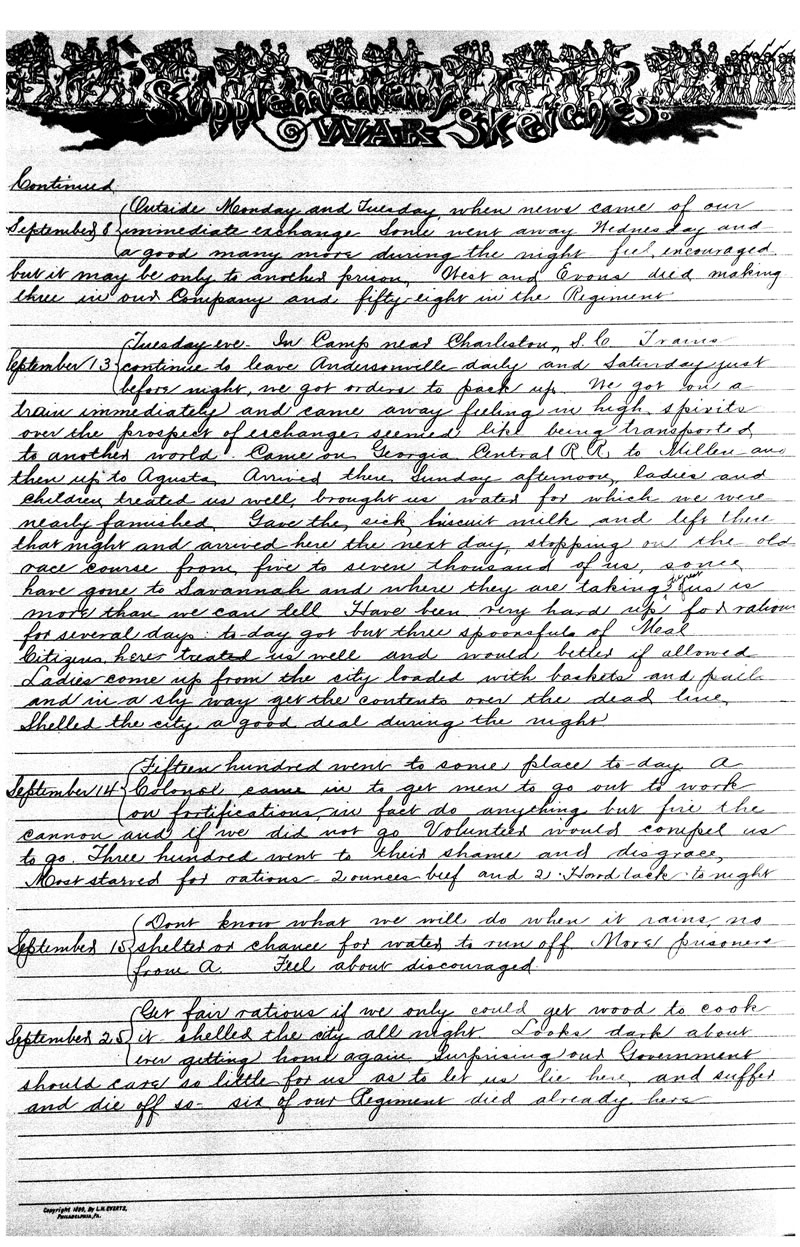 Supplementary
WAR Sketches.
Continued
Outside Monday and Tuesday, when news came of our
September 8 immediate exchange Some went away Wednesday and
a good many more during the night feel encouraged
but it may be only to another prison, West and Evans died making
three in our Company and fifty-eight in the Regiment
Tuesday eve- In Camp near Charleston, S.C. Trains
September 13 continue to leave Andersonville daily and Saturday just
before night, we got orders to pack up. We got on a
train immediately and came away feeling in high spirits
over the prospect of exchange, seemed like being transported
to another world Came on Georgia Central R.R. to Millen and
then up to Agusta, Arrived there Sunday afternoon, ladies and
children treated us well, brought us water for which we were
nearly famished, Gave the sick biscuit milk and left there
that night and arrived here the next day, stopping on the old
race course from five to seven thousand of us, some
have gone to Savannah and where they are taking us is
more than we can tell Have been very hard up for rations
for several days to-day got but three spoonsfuls of Meal
Citizens here treated us well and would better if allowed
Ladies come up from the city loaded with baskets and pails
and in a shy way get the contents over the dead line,
Shelled the city a good deal during the night
Fifteen hundred went to some place to-day A
September 14 Colonel came in to get men to go out to work
on fortifications, in fact do anything but fire the
cannon and if we did not go Volunteer would compel us
to go. Three hundred went to their shame and disgrace,
Most starved for rations- 2 ounces beef and 2 Hard tack to night
Dont know what we will do when it rains, no
September 15 shelter or chance for water to run off More prisoners
from A. Feel about discouraged
Get fair rations if we only could get wood to cook
September 25 it shelled the city all night Looks dark about
ever getting home again Surprising our Government
should care so little for us as to let us lie here and suffer
and die off so- six of our Regiment died already here
Copyright 1890, By L.H. EVERTS,
PHILADELPHIA, PA.